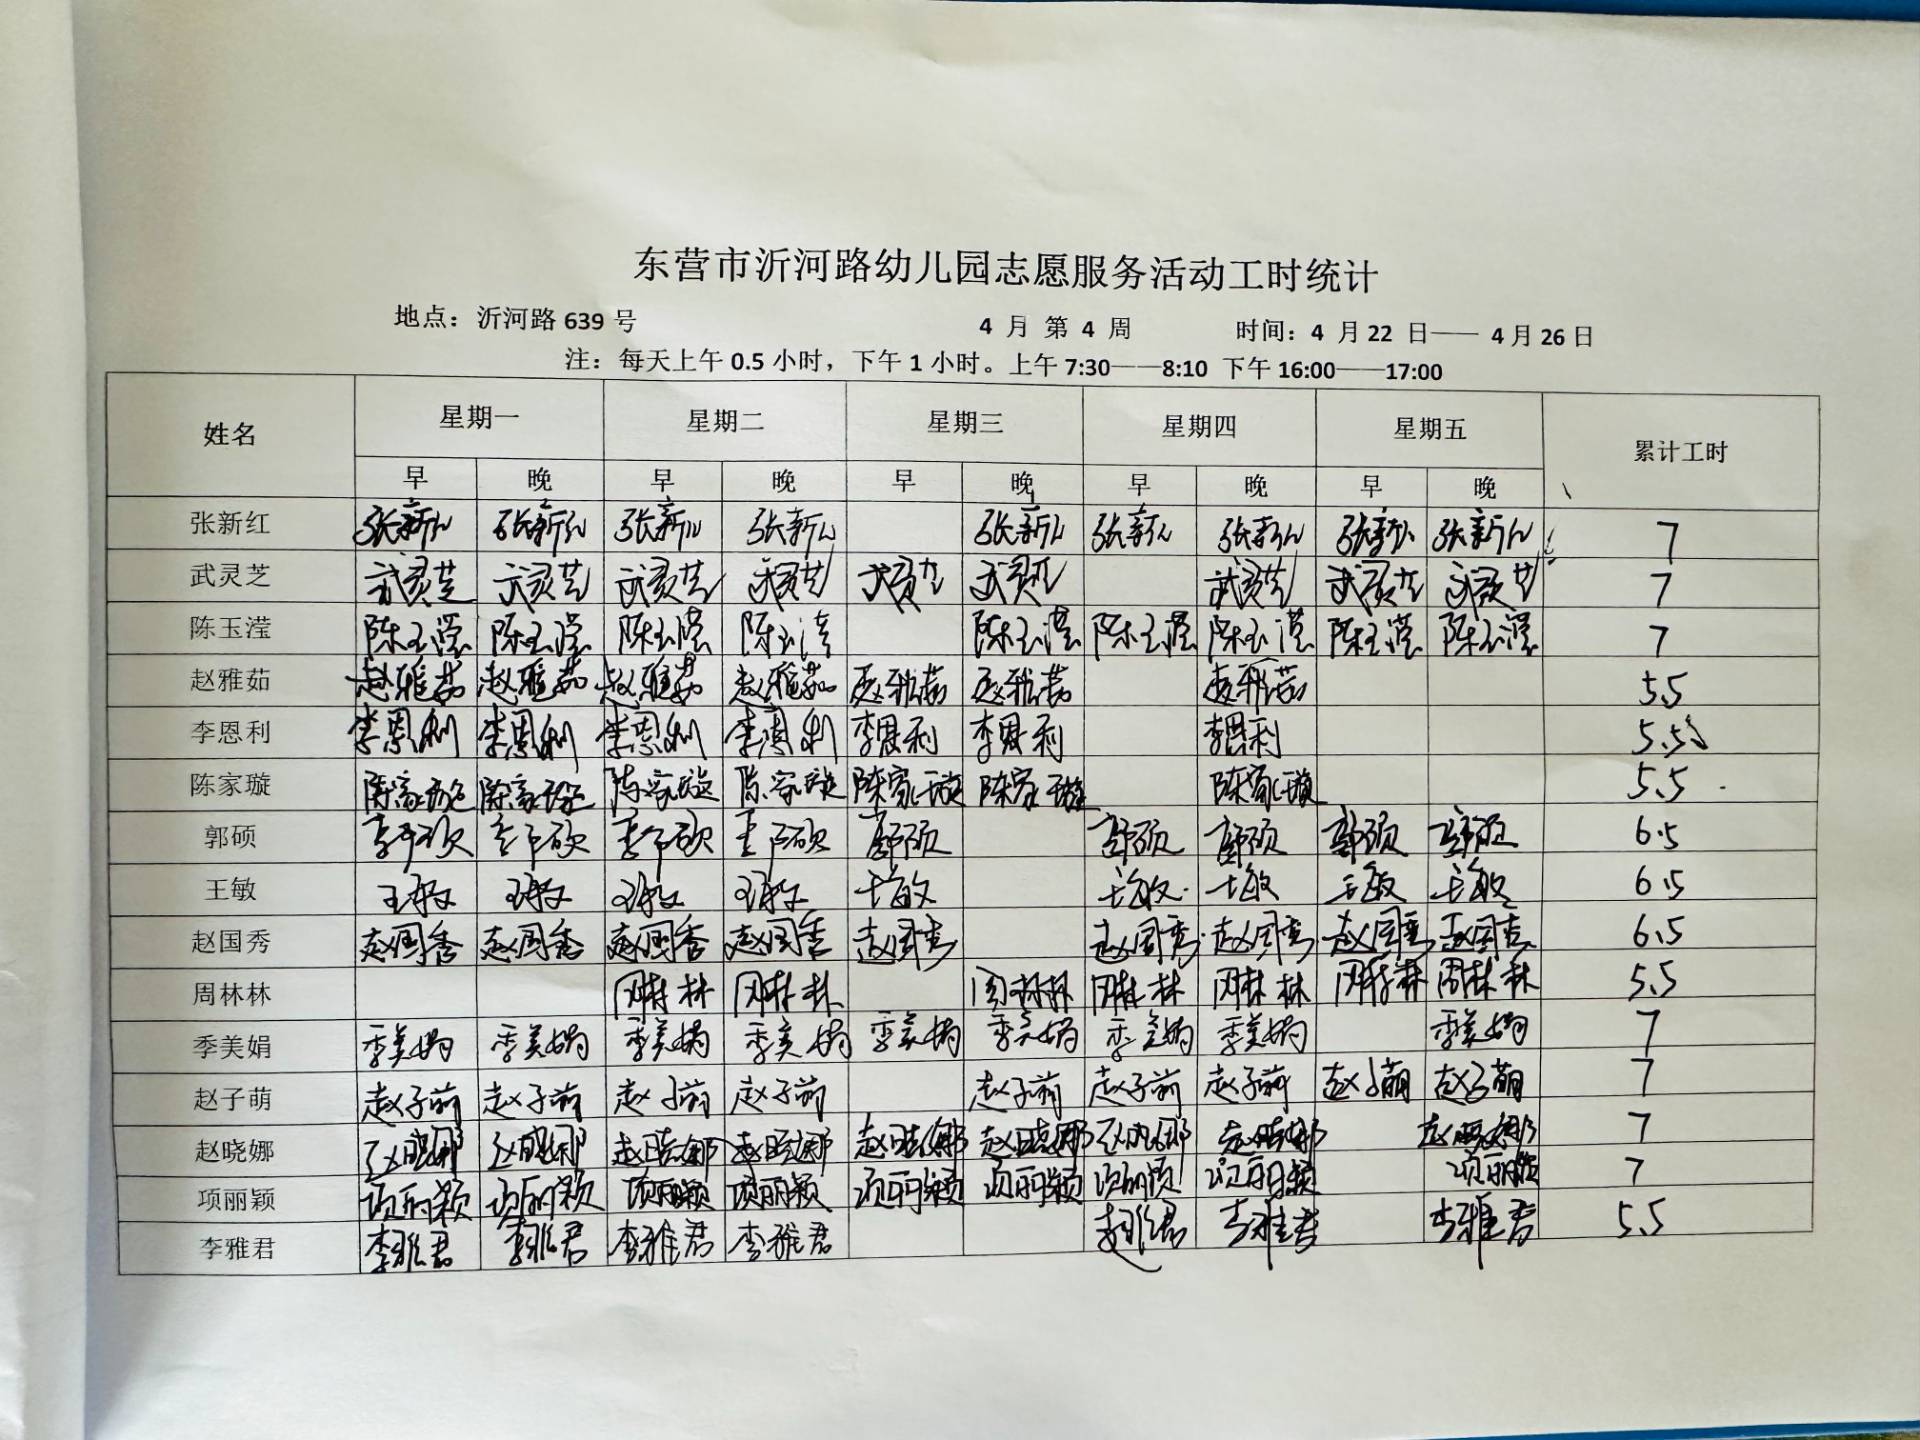 东营市沂河路幼儿园志愿服务活动工时统计
地点：沂河路 639 号 4 月 第 4 周 时间：4 月 22 日—— 4 月 26 日
注：每天上午 0.5 小时，下午 1 小时。上午 7:30——8:10 下午 16:00——17:00
姓名 星期一 星期二 星期三 星期四 星期五 累计工时
早 晚 早 晚 早 晚 早 晚 早 晚
张新红 张新红 张新红 张新红 张新红 张新红 张新红 张新红 张新红 张新红 7
武灵芝 武灵芝 武灵芝 武灵芝 武灵芝 武灵芝 武灵芝 武灵芝 武灵芝 武灵芝 7
陈玉滢 陈玉滢 陈玉滢 陈玉滢 陈玉滢 陈玉滢 陈玉滢 陈玉滢 陈玉滢 陈玉滢 7
赵雅茹 赵雅茹 赵雅茹 赵雅茹 赵雅茹 赵雅茹 赵雅茹 赵雅茹 5.5
李恩利 李恩利 李恩利 李恩利 李恩利 李恩利 李恩利 李恩利 5.5
陈家璇 陈家璇 陈家璇 陈家璇 陈家璇 陈家璇 陈家璇 陈家璇 5.5
郭硕 郭硕 郭硕 郭硕 郭硕 郭硕 郭硕 郭硕 郭硕 郭硕 6.5
王敏 王敏 王敏 王敏 王敏 王敏 王敏 王敏 王敏 王敏 6.5
赵国秀 赵国秀 赵国秀 赵国秀 赵国秀 赵国秀 赵国秀 赵国秀 赵国秀 赵国秀 6.5
周林林 周林林 周林林 周林林 周林林 周林林 周林林 周林林 5.5
季美娟 季美娟 季美娟 季美娟 季美娟 季美娟 季美娟 季美娟 季美娟 季美娟 7
赵子萌 赵子萌 赵子萌 赵子萌 赵子萌 赵子萌 赵子萌 赵子萌 赵子萌 赵子萌 7
赵晓娜 赵晓娜 赵晓娜 赵晓娜 赵晓娜 赵晓娜 赵晓娜 赵晓娜 赵晓娜 赵晓娜 7
项丽颖 项丽颖 项丽颖 项丽颖 项丽颖 项丽颖 项丽颖 项丽颖 项丽颖 项丽颖 7
李雅君 李雅君 李雅君 李雅君 李雅君 李雅君 李雅君 5.5